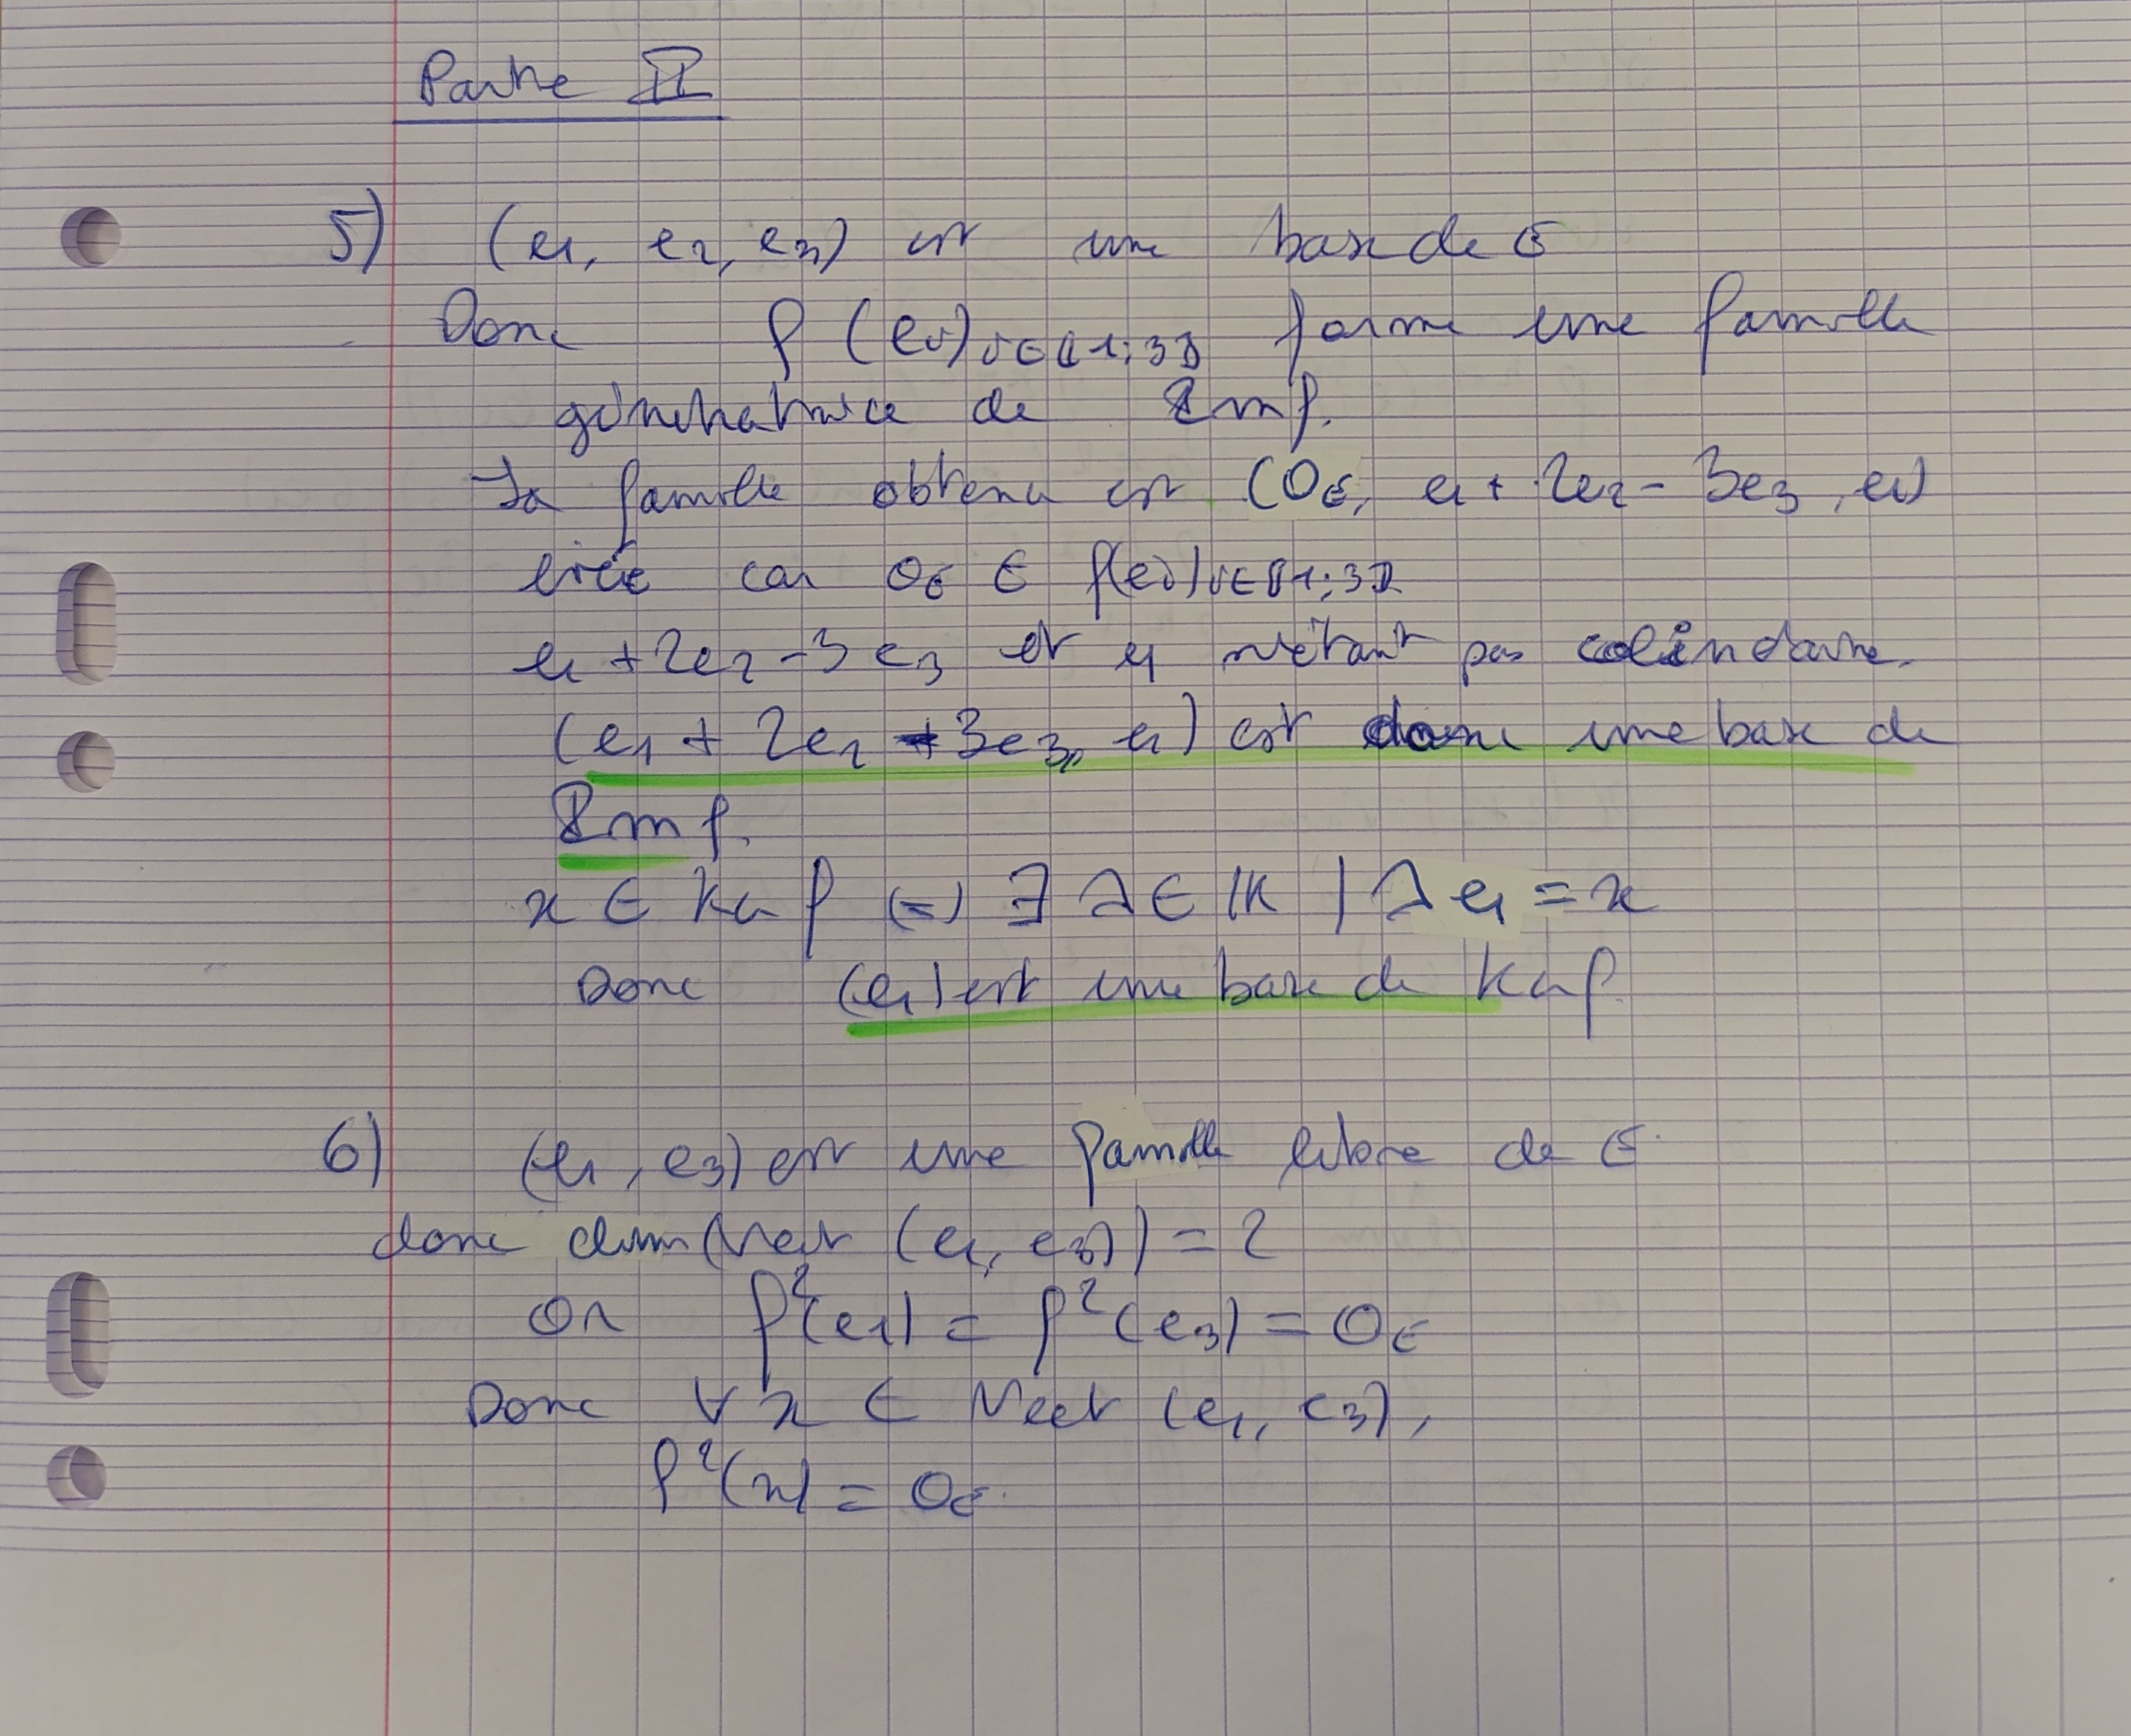 Partie II
5) (e1, e2, e3) est une base de E
Donc f(ei)i∈⟦1;3⟧ forme une famille
génératrice de Im f.
La famille obtenu est (0E, e1 + 2e2 - 3e3, e1)
liée car 0E ∈ f(ei)i∈⟦1;3⟧
e1 + 2e2 - 3e3 et e1 n'étant pas colinéaire.
(e1 + 2e2 - 3e3, e1) est donc une base de
Im f.
x ∈ Ker f ⟺ ∃ λ ∈ 𝕂 | λ e1 = x
Donc (e1) est une base de Ker f
6) (e1, e3) est une famille libre de E
donc dim(Vect(e1, e3)) = 2
or f²(e1) = f²(e3) = 0E
Donc ∀ x ∈ Vect (e1, e3),
f²(x) = 0E.